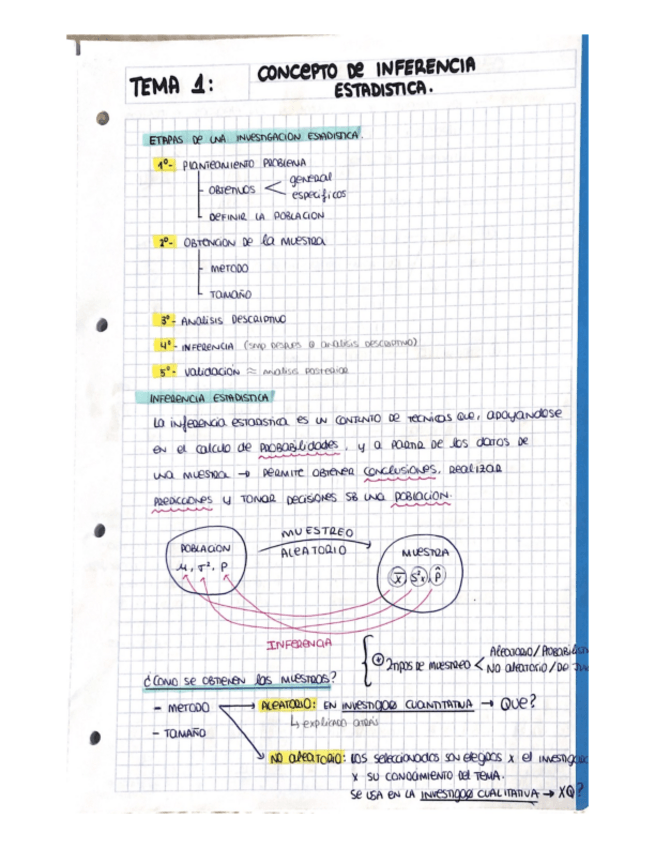 TEMA 1:
CONCEPTO DE INFERENCIA
ESTADISTICA.
ETAPAS DE UNA INVESTIGACION ESTADISTICA.
1º- PLANTEAMIENTO PROBLEMA
OBJETIVOS < general
especificos
DEFINIR LA POBLACION
2º- OBTENCION DE la MUESTRA
METODO
TAMAÑO
3º- ANALISIS DESCRIPTIVO
4º- INFERENCIA ( DESPUES analisis DESCRIPTIVO)
5º- Validacion ≈ analisis posterior
INFERENCIA ESTADISTICA
La inferencia estadistica es un conjunto de tecnicas que, apoyandose
en el calculo de PROBABILIDADES, y a partir de los datos de
una muestra → PERMITE OBTENER CONCLUSIONES, REALIZAR
PREDICCIONES Y TOMAR DECISIONES SB UNA POBLACION.
POBLACION
μ, σ², P
MUESTREO
ALEATORIO
MUESTRA
x̄ S²x p̂
INFERENCIA
2 tipos de muestreo < ALEATORIO / PROBABILIS
NO ALEATORIO / DE JU
¿COMO SE OBTIENEN LAS MUESTRAS?
- METODO → ALEATORIO: EN INVESTIGOO CUANTITATIVA → QUE?
↳ explicado atrás
- TAMAÑO
NO ALEATORIO: LOS seleccionados son elegidos x el investigado
x su conocimiento del tema.
SE USA EN LA INVESTIGOO CUALITATIVA → XQ?